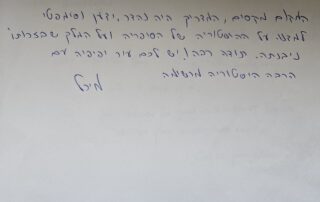 המקום מקסים, המדריך היה נהדר, ידען וסימפטי
למדנו על ההיסטוריה של הספריה ועל המלך שבזכותו
ניבנתה. תודה רבה! יש לכם עיר יפיפיה עם
הרבה היסטוריה מרשימה
מיכל